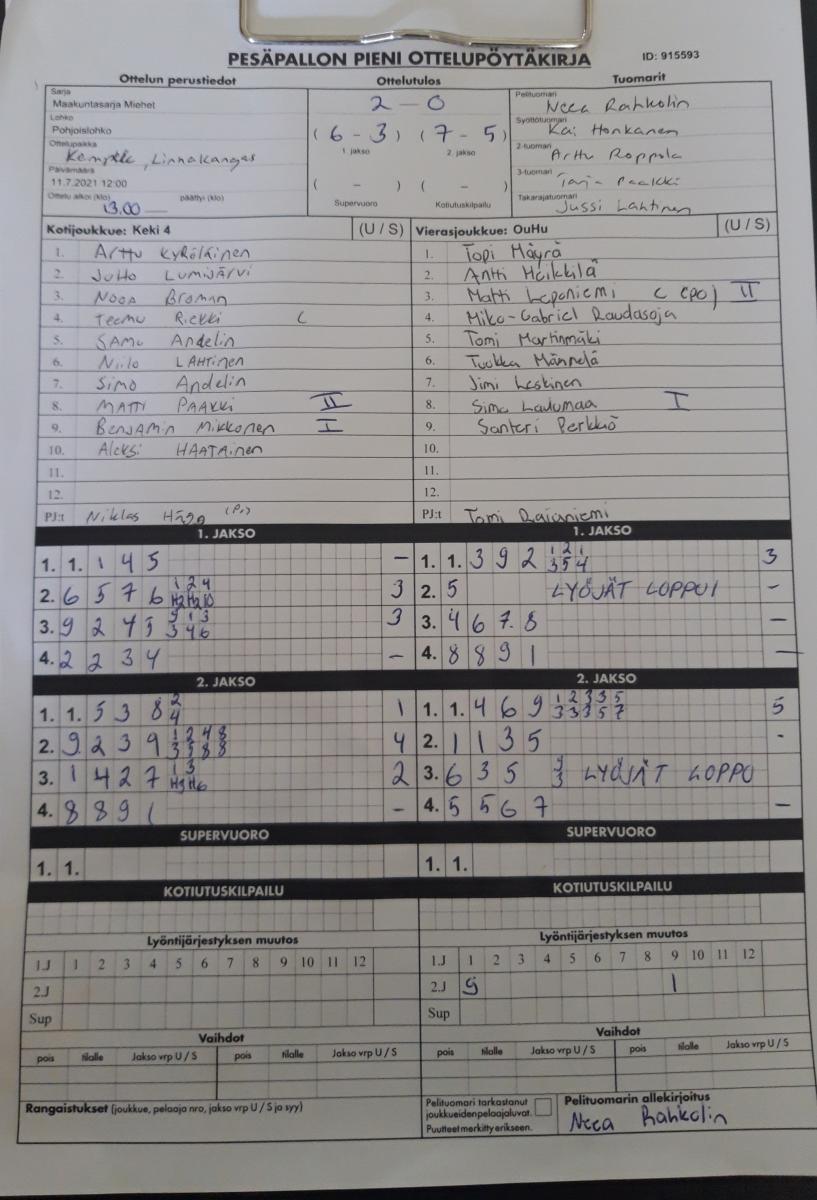 PESÄPALLON PIENI OTTELUPÖYTÄKIRJA ID: 915593
Ottelun perustiedot Ottelutulos Tuomarit
Sarja
Maakuntasarja Miehet
Lohko
Pohjoislohko
Ottelupaikka
Kempele, Linnakangas
Päivämäärä
11.7.2021 12:00
Ottelu alkoi (klo) päättyi (klo)
13.00
2 - 0
(6 - 3) (7 - 5)
1. jakso 2. jakso
( - ) ( - )
Supervuoro Kotiutuskilpailu
Pelituomari
Neea Rahkolin
Syöttötuomari
Kai Honkanen
2-tuomari
Arttu Roppola
3-tuomari
Tarja Paakki
Takarajatuomari
Jussi Lahtinen
Kotijoukkue: Keki 4 (U / S)
1. Arttu Kyröläinen
2. Juho Lumijärvi
3. Nooa Broman
4. Teemu Riekki C
5. Samu Andelin
6. Niilo Lahtinen
7. Simo Andelin
8. Matti Paakki II
9. Benjamin Mikkonen I
10. Aleksi Haatainen
11.
12.
PJ:t Niklas
Vierasjoukkue: OuHu (U / S)
1. Topi Mäyrä
2. Antti Heikkilä
3. Matti Leponiemi C (PJ) II
4. Miko-Gabriel Raudasoja
5. Tomi Martinmäki
6. Tuukka Männelä
7. Jimi Leskinen
8. Simo Laulumaa I
9. Santeri Perkkiö
10.
11.
12.
PJ:t Tomi Rajaniemi
1. JAKSO
1. 1. 1 4 5 -
2. 6 5 7 6 1 2 4 H2 H2 10 3
3. 9 2 4 5 9 1 3 3 4 6 3
4. 2 2 3 4 -
1. JAKSO
1. 1. 3 9 2 1 2 1 3 5 4 3
2. 5 LYÖJÄT LOPPUI -
3. 4 6 7 8 -
4. 8 8 9 1 -
2. JAKSO
1. 1. 5 3 8 2 4 1
2. 9 2 3 9 1 2 4 8 3 5 8 8 4
3. 1 4 2 7 1 3 H3 H6 2
4. 8 8 9 1 -
2. JAKSO
1. 1. 4 6 9 1 2 3 3 5 3 3 3 5 7 5
2. 1 1 3 5 -
3. 6 3 5 LYÖJÄT LOPPU
4. 5 5 6 7 -
SUPERVUORO
1. 1.
SUPERVUORO
1. 1.
KOTIUTUSKILPAILU
KOTIUTUSKILPAILU
Lyöntijärjestyksen muutos
1.J 1 2 3 4 5 6 7 8 9 10 11 12
2.J
Sup
Lyöntijärjestyksen muutos
1.J 1 2 3 4 5 6 7 8 9 10 11 12
2.J 9 1
Sup
Vaihdot
pois tilalle Jakso vrp U / S pois tilalle Jakso vrp U / S
Vaihdot
pois tilalle Jakso vrp U / S pois tilalle Jakso vrp U / S
Rangaistukset (joukkue, pelaaja nro, jakso vrp U / S ja syy)
Pelituomari tarkastanut
joukkueiden pelaajaluvat.
Puutteet merkitty erikseen.
Pelituomarin allekirjoitus
Neea Rahkolin